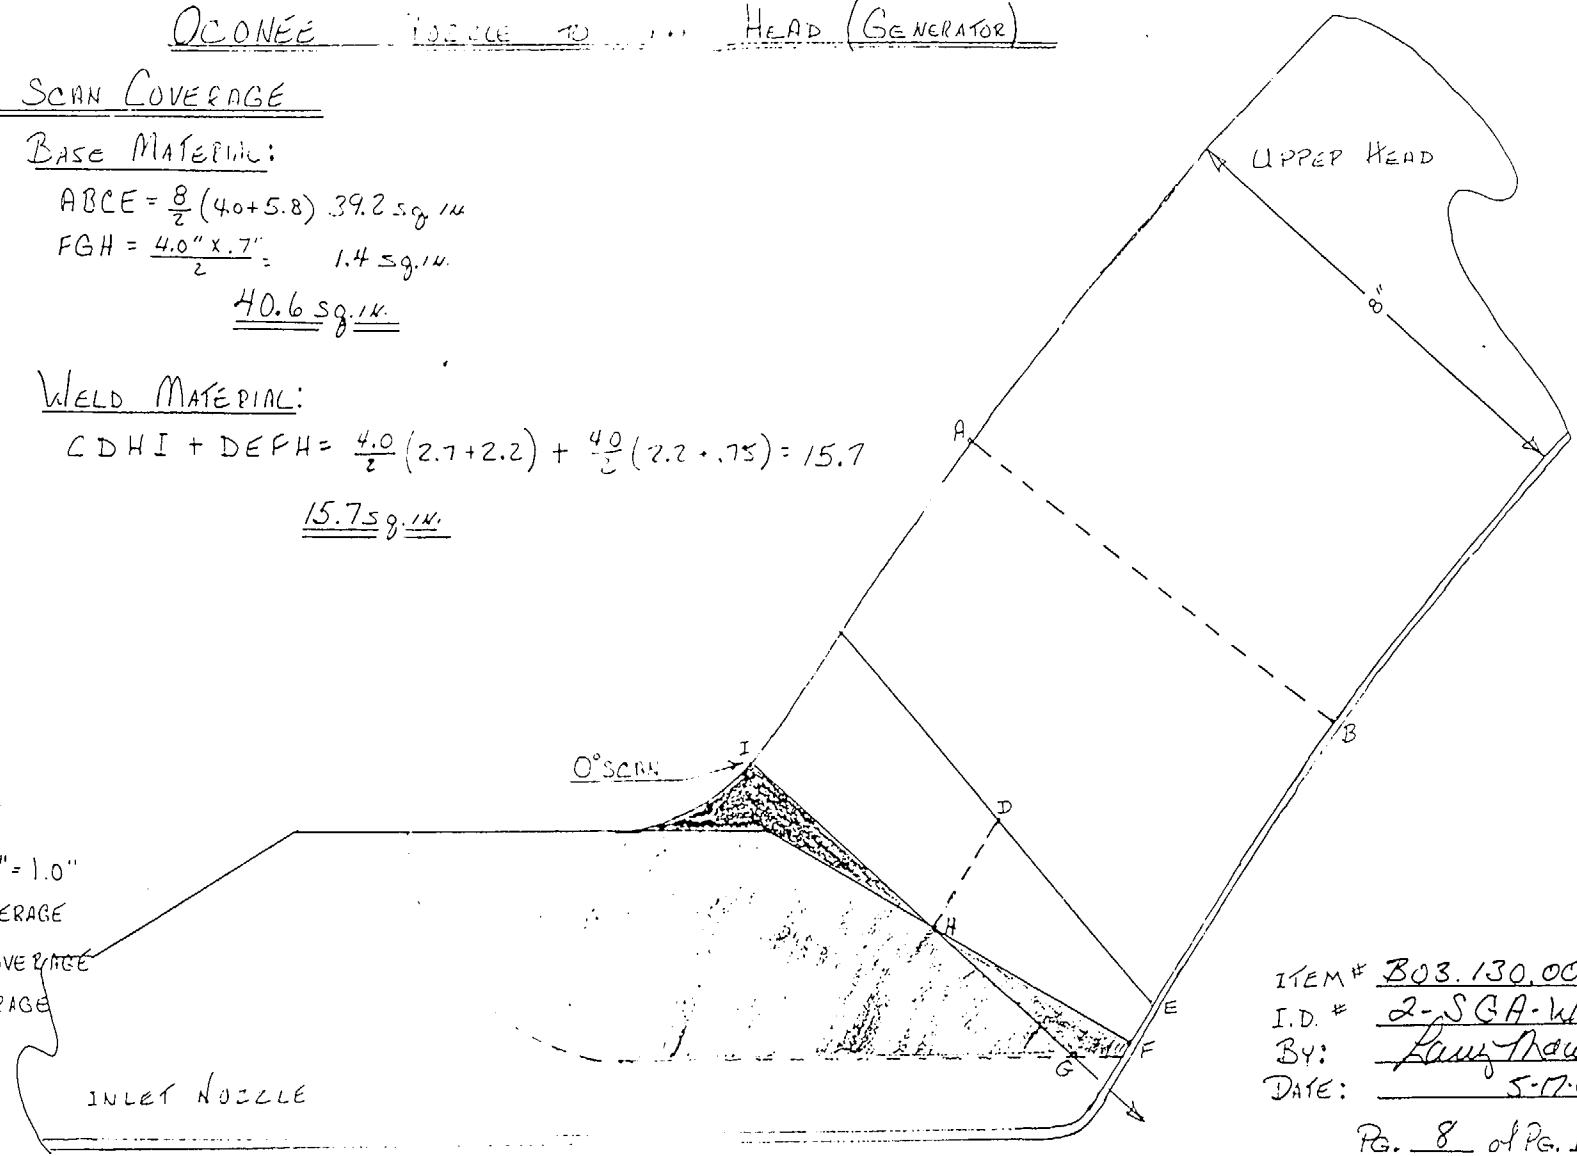 OCONEE TO HEAD (GENERATOR)
SCAN COVERAGE
BASE MATERIAL:
ABCE = 8/2 (4.0+5.8) 39.2 sq in
FGH = 4.0" x .7" / 2 = 1.4 sq.in.
40.6 sq.in.
WELD MATERIAL:
CDHI + DEFH = 4.0/2 (2.7+2.2) + 4.0/2 (2.2 + .75) = 15.7
15.7 sq.in.
UPPER HEAD
8"
A
B
I
0° SCAN
D
H
E
F
G
" = 1.0"
ERAGE
OVERAGE
RAGE
INLET NOZZLE
ITEM # B03.130.00
I.D. # 2-SGA-W
BY:
DATE: 5-17-
PG. 8 of PG.